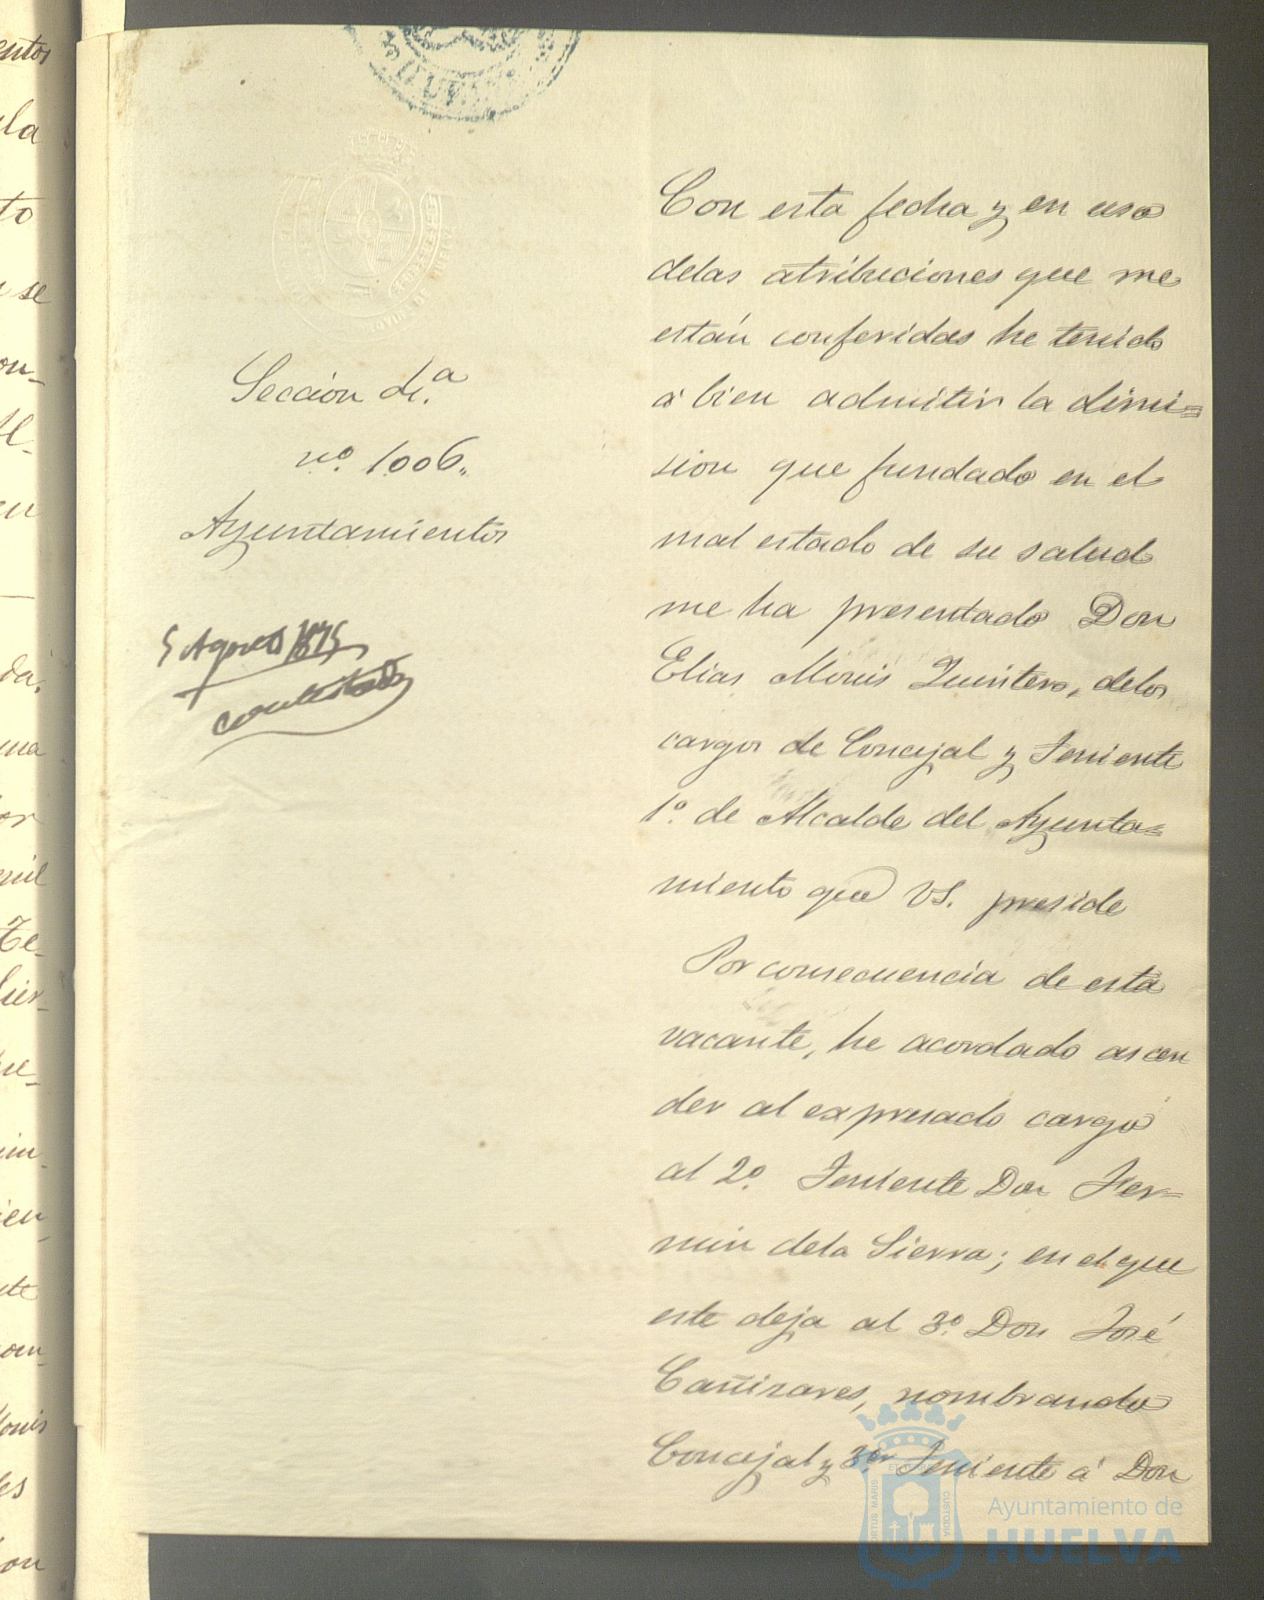 Sección
nº 1.006.
Ayuntamientos
5 Agosto 1875
contestado
Con esta fecha y en uso
delas atribuciones que me
están conferidas he tenido
á bien admitir la dimi=
sion que fundado en el
mal estado de su salud
me ha presentado Don
Elias Monis Quintero, delos
cargos de Concejal y Teniente
1º de Alcalde del Ayunta=
miento que VS. preside
Por consecuencia de esta
vacante, he acordado ascen
der al expresado cargo
al 2º Teniente Don Fer=
min dela Sierra; en el que
este deja al 3º Don José
Cañizares, nombrando
Concejal y 3er Teniente á Don
Ayuntamiento de
HUELVA